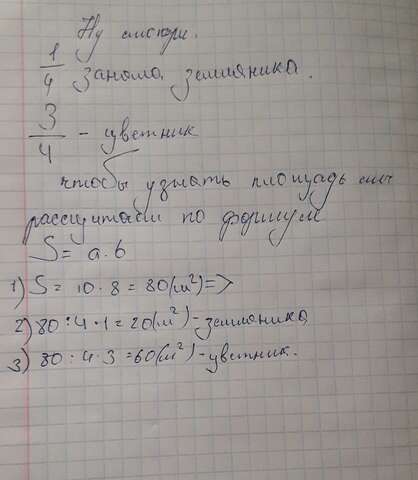 Ну смотри.
1/4 заняла земляника.
3/4 - цветник
чтобы узнать площадь мы
рассчитали по формуле
S = a · b
1) S = 10 · 8 = 80(м²) =>
2) 80 : 4 · 1 = 20(м²) - земляника
3) 80 : 4 · 3 = 60(м²) - цветник.